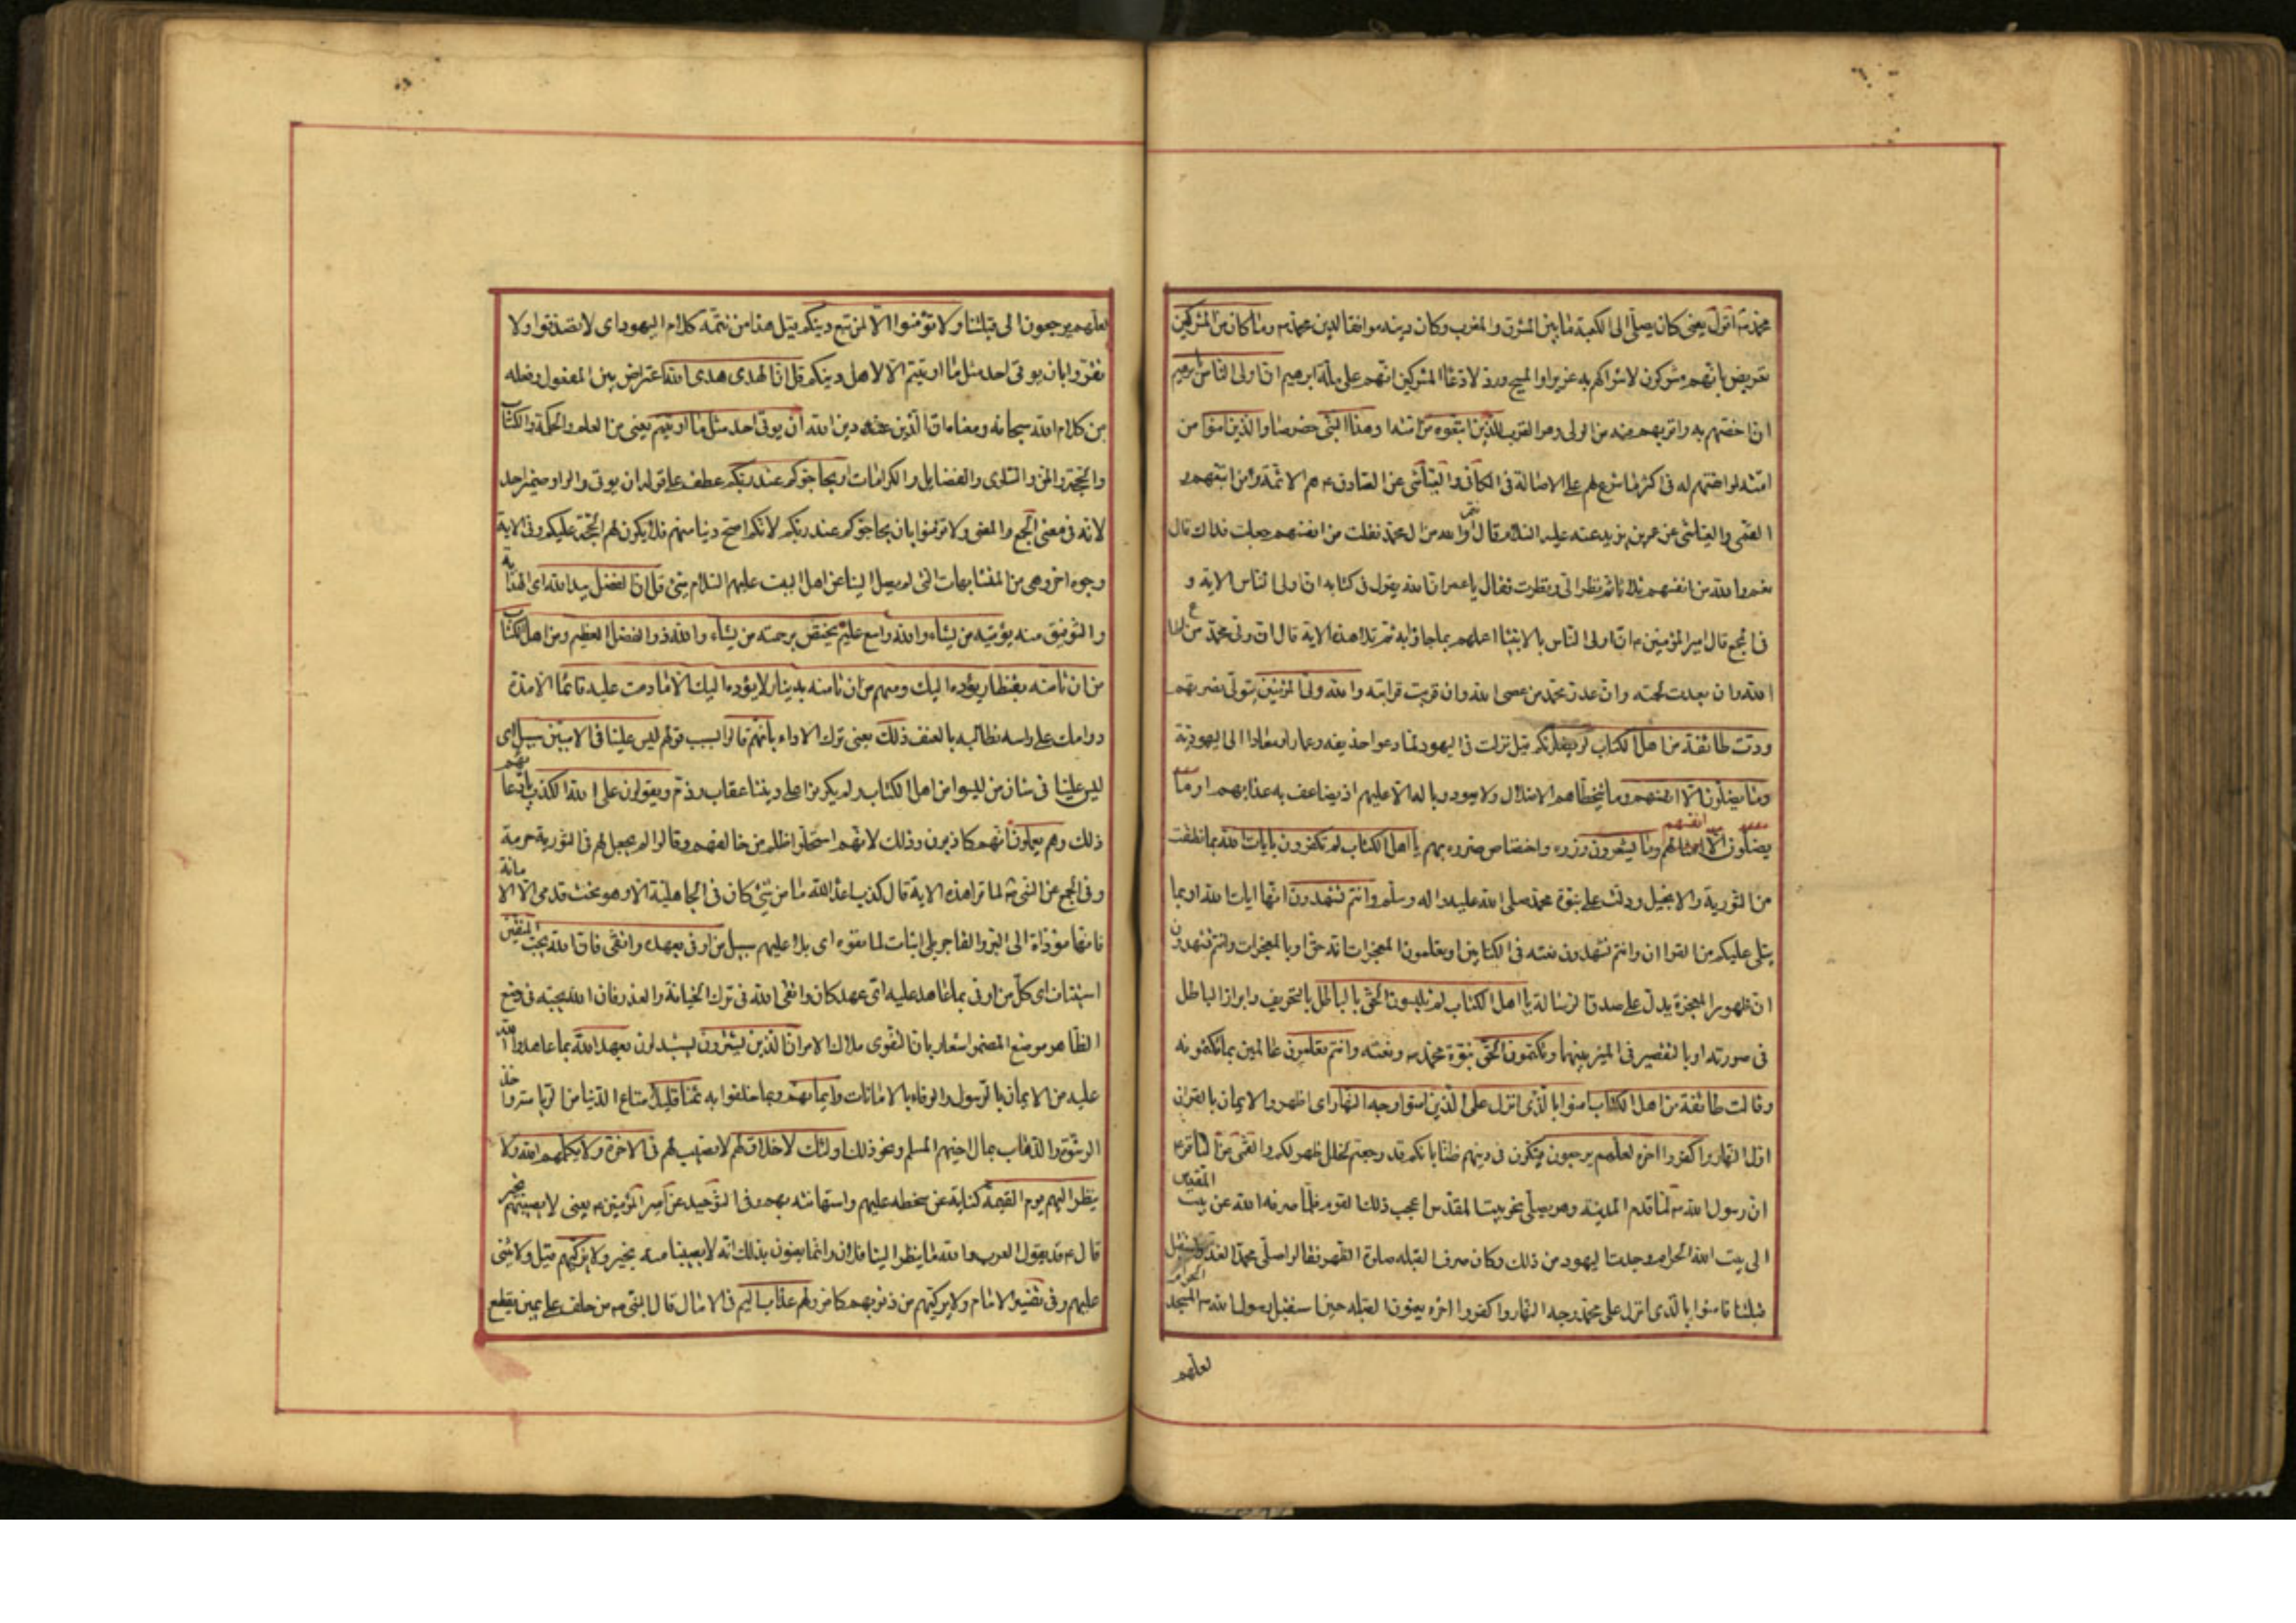 محمد ص اقول يعنى كان يصلى الى الكعبة ما بين المشرق والمغرب وكان دينه موافقا لدين محمد ص وما كان من المشركين
تعريض بانهم مشركون لاشراكهم به عزيرا والمسيح ورد لادعاء المشركين انهم على ملة ابرهيم ان اولى الناس بابرهيم
ان اخصهم به واقربهم منه من الولى وهو القرب للذين اتبعوه من امته وهذا النبى خصوصا والذين امنوا من
امته لموافقتهم له فى اكثر ما شرع لهم على الاصالة فى الكافى والعياشى عن الصادق ع هم الائمة ومن اتبعهم و
القمى والعياشى عن عمر بن يزيد عنه عليه السلام قال انتم والله من ال محمد فقلت من انفسهم جعلت فداك قال
نعم والله من انفسهم ثلاثا ثم نظر الى ونظرت فقال يا عمر ان الله يقول فى كتابه ان اولى الناس الاية و
فى المجمع قال امير المؤمنين ع ان اولى الناس بالانبياء اعلمهم بما جاؤا به ثم تلا هذه الاية قال ان ولى محمد من اطاع
الله وان بعدت لحمته وان عدو محمد من عصى الله وان قربت قرابته والله ولى المؤمنين يتولى نصرتهم
ودت طائفة من اهل الكتاب لو يضلونكم قيل نزلت فى اليهود لما دعوا حذيفة وعمارا ومعاذا الى اليهودية
وما يضلون الا انفسهم وما يتخطاهم الاضلال ولا يعود وباله الا عليهم اذ يضاعف به عذابهم او ما
يضلون الا امثالهم وما يشعرون وزره واختصاص ضرره بهم يا اهل الكتاب لم تكفرون بايات الله بما نطقت
من التورية والانجيل ودلت على نبوة محمد صلى الله عليه واله وسلم وانتم تشهدون انها ايات الله او بما
يتلى عليكم من القران وانتم تشهدون نعته فى الكتابين او تعلمون المعجزات انه حق او بالمعجزات وانتم تشهدون
ان ظهور المعجزة يدل على صدق الرسالة يا اهل الكتاب لم تلبسون الحق بالباطل بالتحريف وابراز الباطل
فى صورته او بالتقصير فى الميز بينهما وتكتمون الحق نبوة محمد ص ونعته وانتم تعلمون عالمين بما تكتمونه
وقالت طائفة من اهل الكتاب امنوا بالذى انزل على الذين امنوا وجه النهار اى اظهروا الايمان بالقران
اول النهار واكفروا اخره لعلهم يرجعون يشكون فى دينهم ظنا بانكم قد رجعتم لخلل ظهر لكم والقمى عن الباقر ع
ان رسول الله ص لما قدم المدينة وهو يصلى نحو بيت المقدس اعجب ذلك القوم فلما صرفه الله عن بيت المقدس
الى بيت الله الحرام وجدت اليهود من ذلك وكان صرف القبلة صلوة الظهر فقالوا صلى محمد الغداة واستقبل
قبلتنا فامنوا بالذى انزل على محمد وجه النهار واكفروا اخره يعنون القبلة حين استقبل رسول الله ص المسجد الحرام
لعلهم
لعلهم يرجعون الى قبلتنا ولا تؤمنوا الا لمن تبع دينكم قيل هذا من تتمة كلام اليهود اى لا تصدقوا ولا
تقروا بان يوتى احد مثل ما اوتيتم الا لاهل دينكم قل ان الهدى هدى الله اعتراض بين المفعول وفعله
من كلام الله سبحانه ومعناه ان الدين دين الله ان يوتى احد مثل ما اوتيتم يعنى من العلم والحكمة والكتاب
والحجة والمن والسلوى والفضايل والكرامات او يحاجوكم عند ربكم عطف على قوله ان يوتى والواو ضمير احد
لانه فى معنى الجمع والمعنى ولا تؤمنوا بان يحاجوكم عند ربكم لانكم اصح دينا منهم فلا يكون لهم الحجة عليكم وفى الاية
وجوه اخر وهى من المتشابهات التى لم يصل الينا عن اهل البيت عليهم السلام شئ قل ان الفضل بيد الله اى الهداية
والتوفيق منه يؤتيه من يشاء والله واسع عليم يختص برحمته من يشاء والله ذو الفضل العظيم ومن اهل الكتاب
من ان تامنه بقنطار يؤده اليك ومنهم من ان تامنه بدينار لا يؤده اليك الا ما دمت عليه قائما الا مدة
دوامك على راسه تطالبه بالعنف ذلك يعنى ترك الاداء بانهم قالوا بسبب قولهم ليس علينا فى الاميين سبيل اى
ليس علينا فى شان من ليسوا من اهل الكتاب ولم يكونوا على ديننا عقاب وذم ويقولون على الله الكذب بادعائهم
ذلك وهم يعلمون انهم كاذبون وذلك لانهم استحلوا ظلم من خالفهم وقالوا لم يجعل لهم فى التورية حرمة
وفى المجمع عن النبى ص لما قرا هذه الاية قال كذب اعداء الله ما من شئ كان فى الجاهلية الا وهو تحت قدمى الا الامانة
فانها مؤداة الى البر والفاجر بلى اثبات لما نفوه اى بلى عليهم سبيل من اوفى بعهده واتقى فان الله يحب المتقين
استيناف اى كل من اوفى بما عاهد عليه اى عهد كان واتقى الله فى ترك الخيانة والغدر فان الله يحبه فى وضع
الظاهر موضع المضمر اشعار بان التقوى ملاك الامر ان الذين يشترون يستبدلون بعهد الله بما عاهدوا الله
عليه من الايمان بالرسول والوفاء بالامانات وايمانهم وبما حلفوا به ثمنا قليلا متاع الدنيا من الرياسة واخذ
الرشوة والذهاب بمال اخيهم المسلم ونحو ذلك اولئك لا خلاق لهم لا نصيب لهم فى الاخرة ولا يكلمهم الله ولا
ينظر اليهم يوم القيمة كناية عن سخطه عليهم واستهانته بهم وفى التوحيد عن امير المؤمنين ع يعنى لا يصيبهم بخير
قال ع قد يقول العرب والله ما ينظر الينا فلان وانما يعنون بذلك انه لا يصيبنا منه بخير ولا يزكيهم قيل ولا يثنى
عليهم وفى تفسير الامام ولا يزكيهم من ذنوبهم كما مر ولهم عذاب اليم فى الامالى قال النبى ص من حلف على يمين يقطع